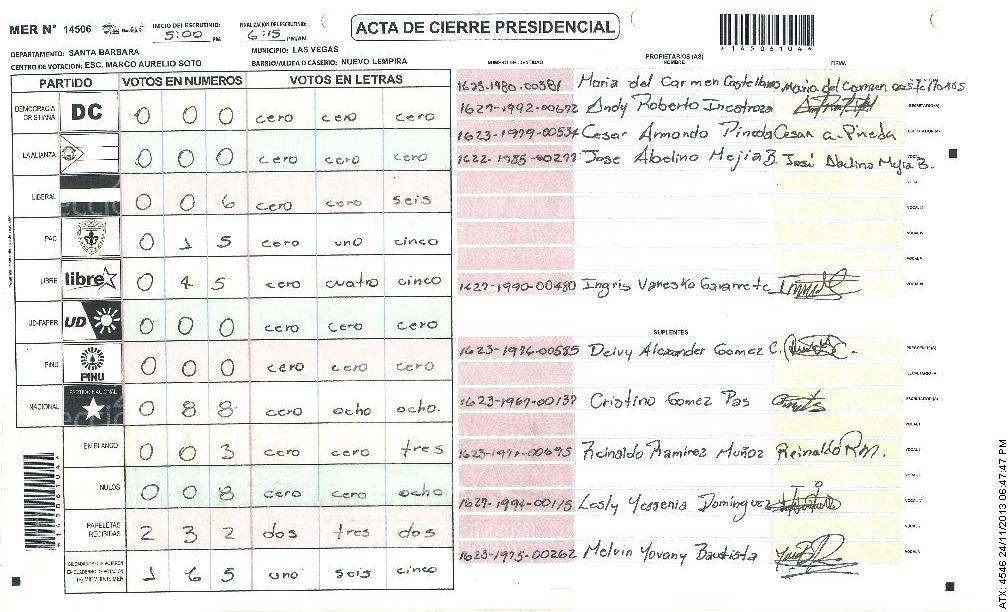 MER N° 14506
INICIO DEL ESCRUTINIO: 5:00 PM
FINALIZACION DEL ESCRUTINIO: 6:15 PM/AM
ACTA DE CIERRE PRESIDENCIAL
DEPARTAMENTO: SANTA BARBARA
MUNICIPIO: LAS VEGAS
CENTRO DE VOTACION: ESC. MARCO AURELIO SOTO
BARRIO/ALDEA O CASERIO: NUEVO LEMPIRA
PARTIDO VOTOS EN NUMEROS VOTOS EN LETRAS
DEMOCRACIA CRISTIANA DC 0 0 0 cero cero cero
LA ALIANZA 0 0 0 cero cero cero
LIBERAL 0 0 6 cero cero seis
PAC 0 1 5 cero uno cinco
LIBRE libre 0 4 5 cero cuatro cinco
UD-FAPER UD 0 0 0 cero cero cero
PINU PINU 0 0 0 cero cero cero
NACIONAL PARTIDO NACIONAL 0 8 8 cero ocho ocho.
EN BLANCO 0 0 3 cero cero tres
NULOS 0 0 8 cero cero ocho
PAPELETAS RECIBIDAS 2 3 2 dos tres dos
1 6 5 uno seis cinco
PROPIETARIOS (AS)
NUMERO DE IDENTIDAD NOMBRE FIRMA
1623-1980-00381 Maria del Carmen Castellanos Maria del Carmen Castellanos
1627-1992-00672 Andy Roberto Inestroza SECRETARIO(A)
1623-1979-00534 Cesar Armando Pineda Cesar A. Pineda ESCRUTADOR(A)
1622-1985-00277 Jose Abelino Mejia B. José Abelino Mejia B.
1627-1990-00480 Ingris Vaneska Gavarrete
SUPLENTES
1623-1976-00585 Deivy Alexander Gomez C. PRESIDENTE (A)
SECRETARIO(A)
1623-1967-00137 Cristino Gomez Pas ESCRUTADOR (A)
1623-1971-00695 Reinaldo Ramirez Muñoz Reinaldo R M.
1627-1994-00115 Lesly Yessenia Dominguez
1623-1975-00262 Melvin Yovany Bautista
ATX: 4546 24/11/2013 06:47:47 PM